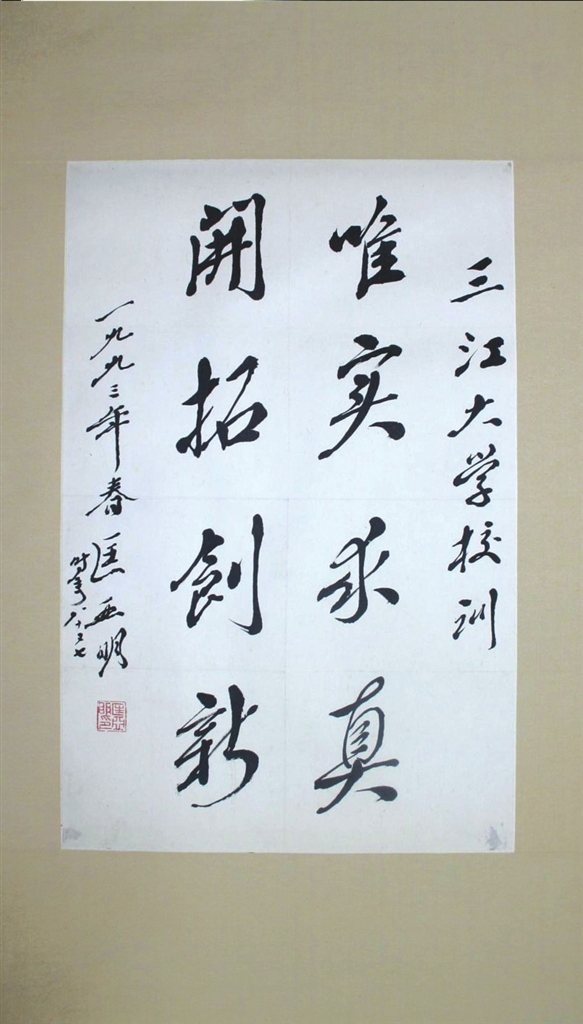 三江大学校训
唯实求真
開拓創新
一九九三年春 匡亚明
时年八十又七
匡亚明印